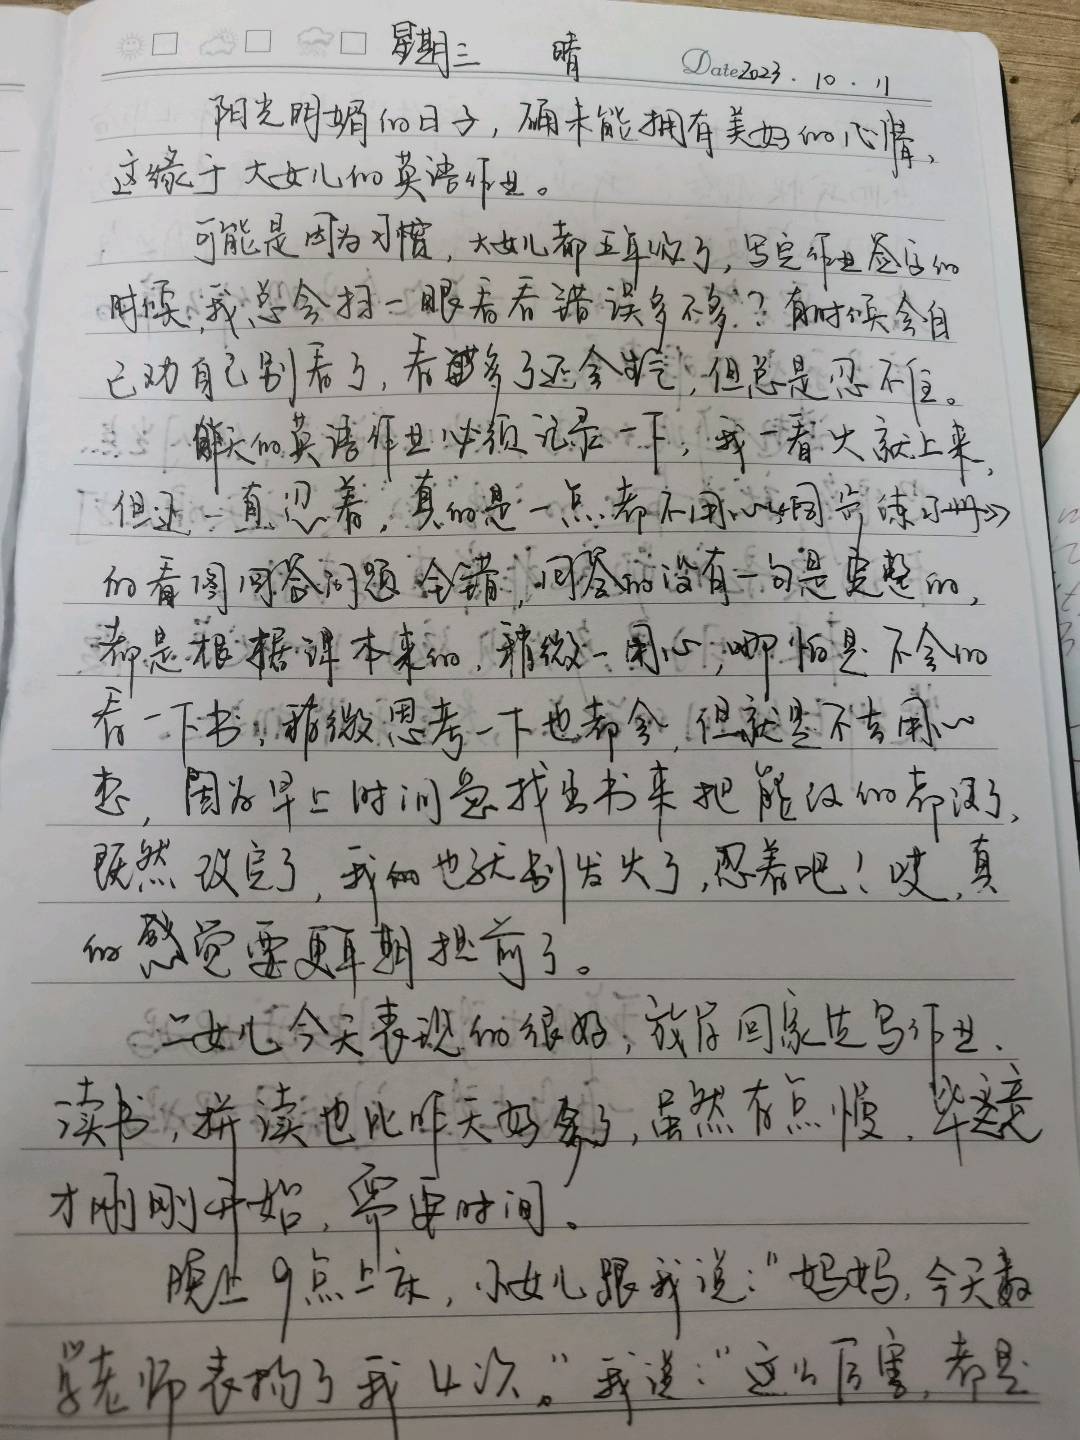 星期三 晴 Date 2023.10.11
阳光明媚的日子，确未能拥有美好的心情，
这缘于大女儿的英语作业。
可能是因为习惯，大女儿都五年级了，写完作业签字的
时候，我总会扫一眼看看错误多不多？有时候会自
己劝自己别看了，看多了还会生气，但总是忍不住。
昨天的英语作业必须记录一下，我一看火就上来，
但还一直忍着，真的是一点都不用心《同步练习册》
的看图回答问题全错，回答的没有一句是完整的，
都是根据课本来的，稍微一用心，哪怕是不会的
看一下书，稍微思考一下也都会，但就是不去用心
想，因为早上时间急找出书来把能改的都改了，
既然改完了，我的也就别发火了，忍着吧！哎，真
的感觉要更年期提前了。
二女儿今天表现的很好，放学回家先写作业、
读书，拼读也比昨天好多了，虽然有点慢，毕竟
才刚刚开始，需要时间。
晚上9点上床，小女儿跟我说：“妈妈，今天数
学老师表扬了我4次。”我说：“这么厉害，都是